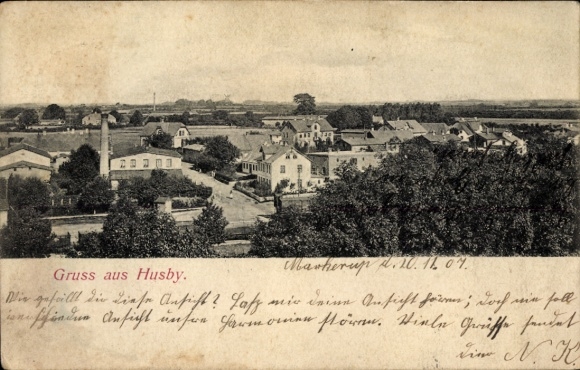 Gruss aus Husby.
Markerup d. 10.11.07.
Wie gefällt dir diese Ansicht? Laß mir deine Ansicht hören; doch nie soll
verschiedne Ansicht unsre Harmonien stören. Viele Grüße sendet
dein N. K.